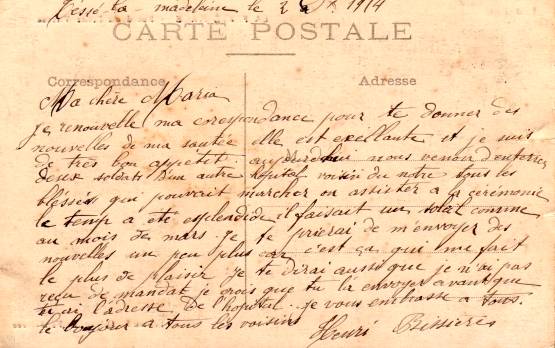 Téssé la madeleine le 2 1914
CARTE POSTALE
Correspondance Adresse
Ma chère Maria
Je renouvelle ma corespondance pour te donner des
nouvelles de ma santée elle est exellante et je suis
de très bon appetit. aujourdhui nous venon d'enterrer
deux soldats d'un autre hopital voisin du notre tous les
bléssés qui pouvait marcher on assister a la cérémonie
le temp a ete esplendide il faisait un soleil comme
au mois des mars je te prierai de m'envoyer des
nouvelles un peu plus car c'est ça qui me fait
le plus de plaisir je te dirai aussi que je n'ai pas
reçu de mandat je crois que tu la envoyer avant que
tu ai l'adresse de l'hopital je vous embrasse a tous.
le bonjour a tous les voisins
Henri Bissieres